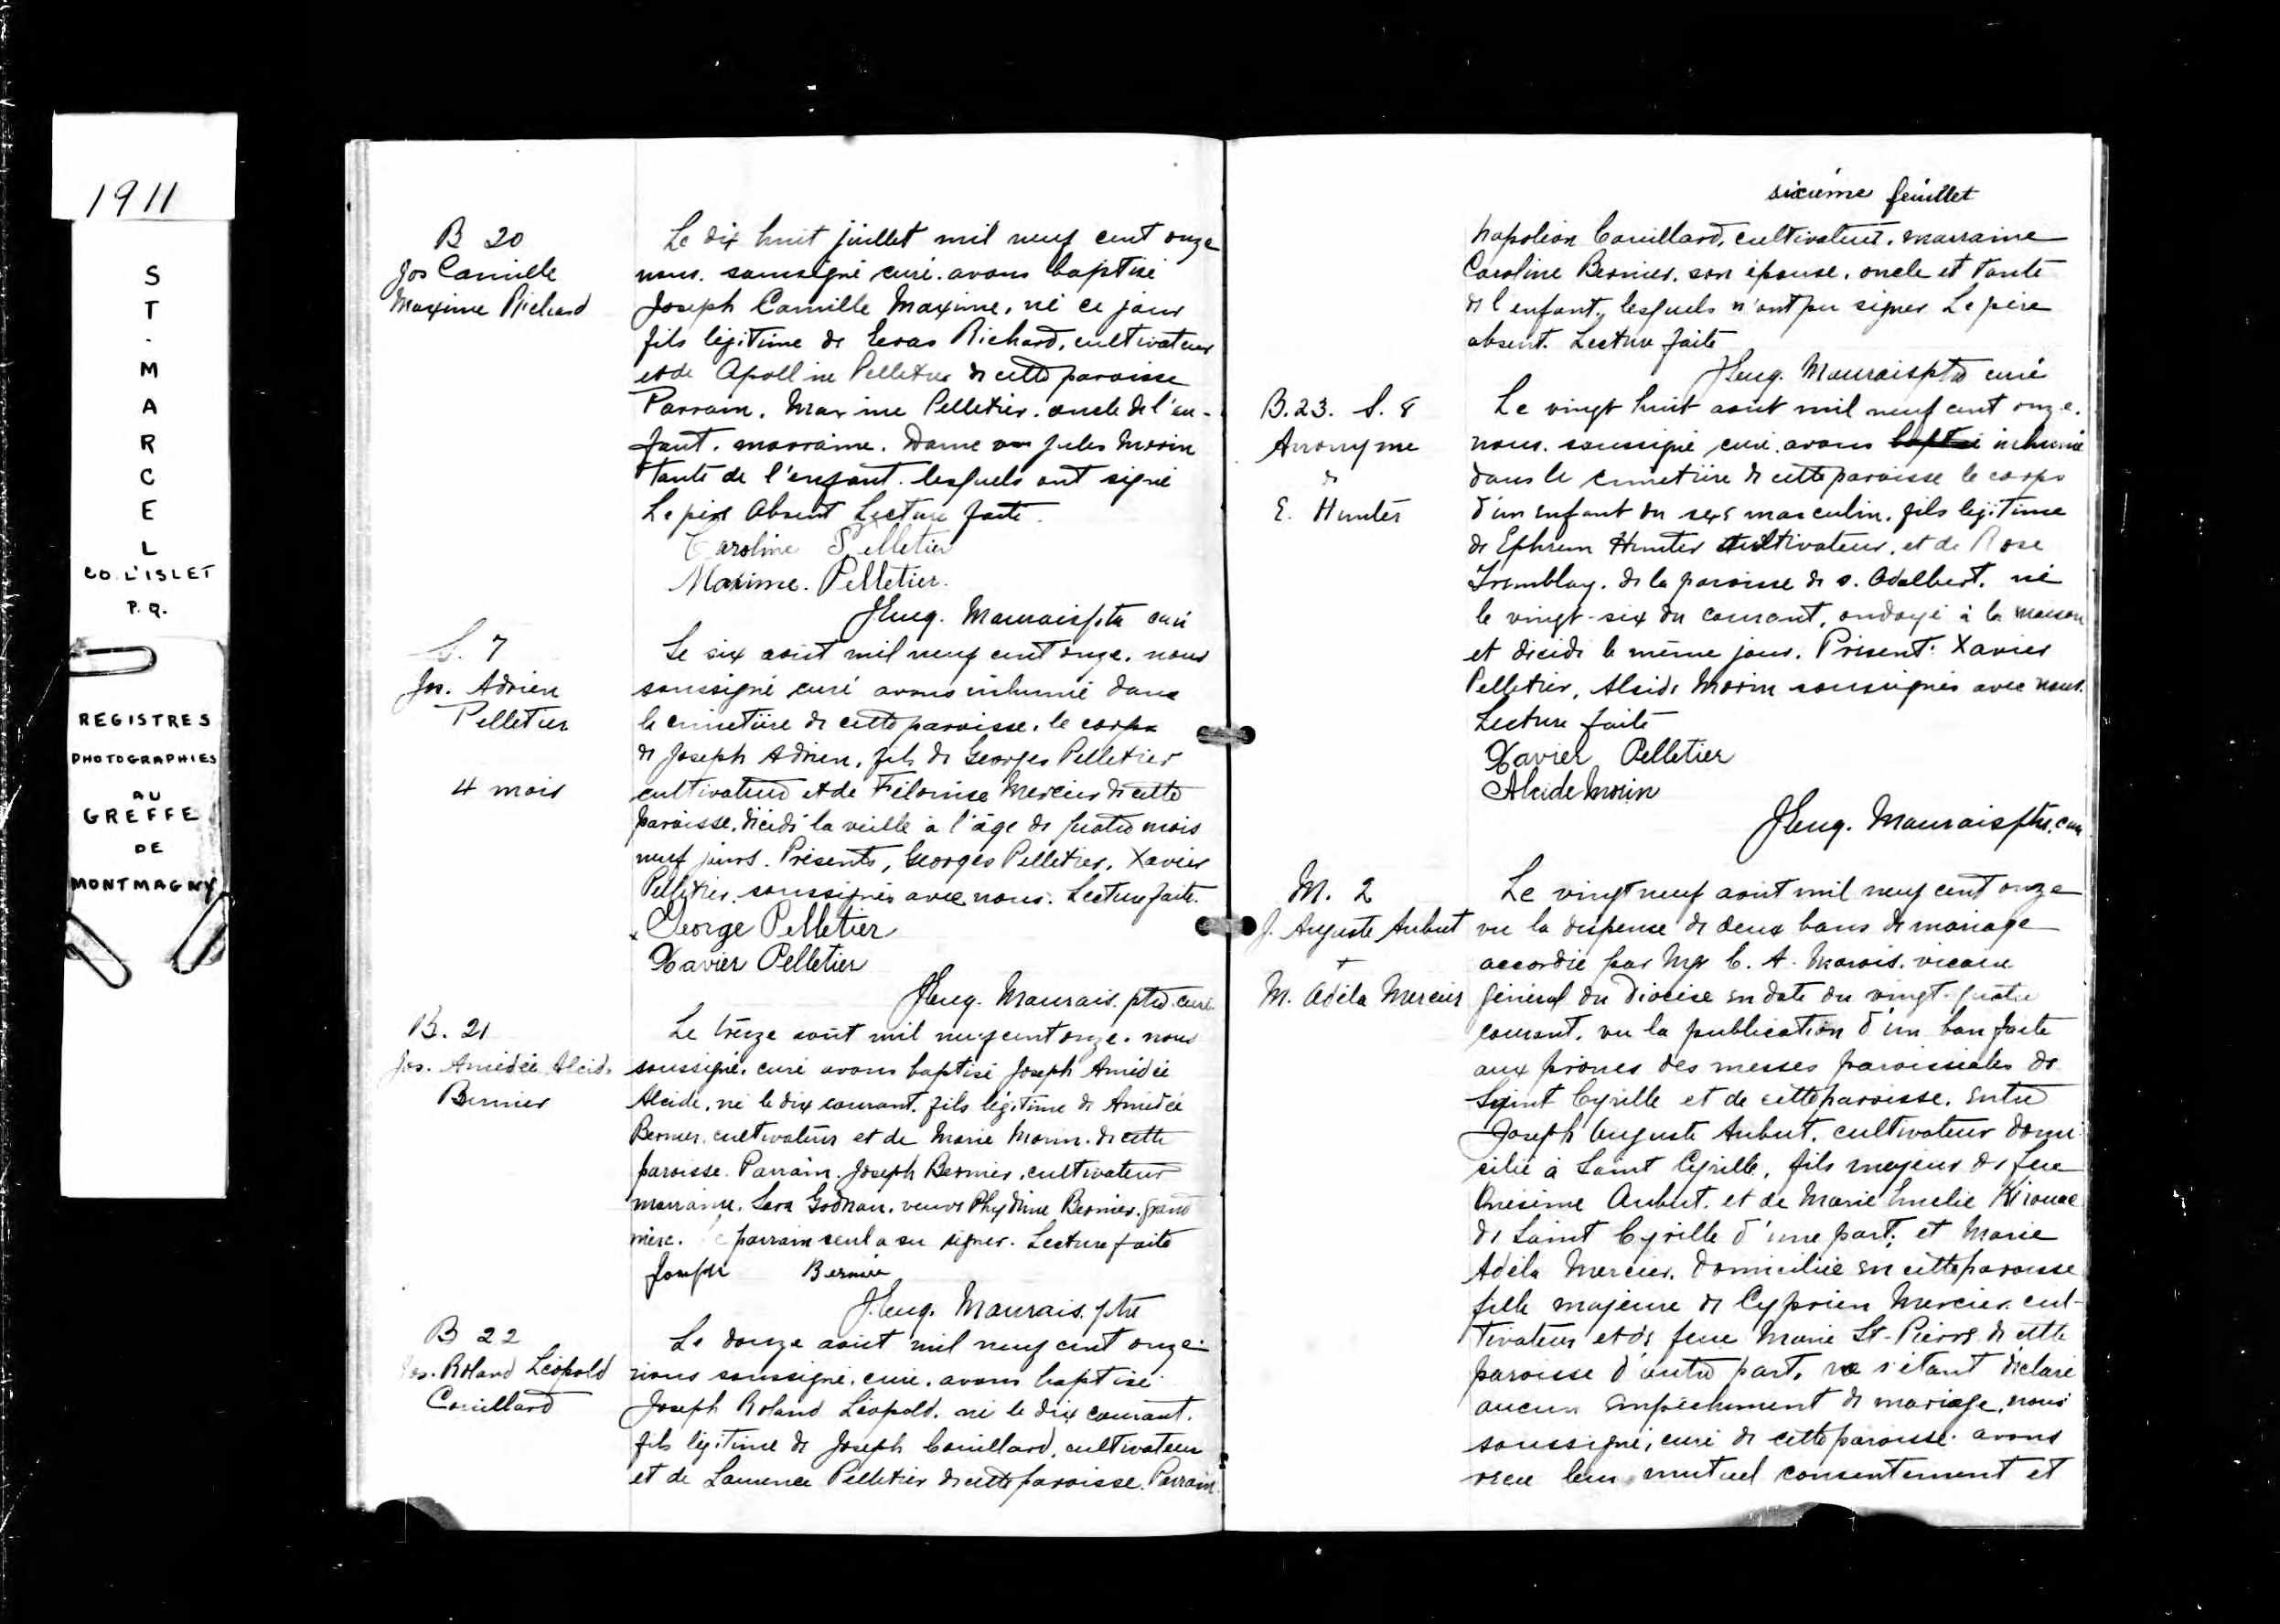 1911
ST. MARCEL
CO. L'ISLET
P. Q.
REGISTRES
PHOTOGRAPHIES
AU
GREFFE
DE
MONTMAGNY
B 20
Jos Camille
Maxime Richard
Le dix huit juillet mil neuf cent onze
nous. soussigné curé. avons baptisé
Joseph Camille Maxime, né ce jour
fils légitime de Richard, cultivateur
et de Apolline Pelletier de cette paroisse
Parrain. Maxime Pelletier. oncle de l'en-
fant. marraine. Dame Jules Morin
tante de l'enfant. lesquels ont signé
Le père Absent Lecture faite.
Caroline Pelletier
Maxime. Pelletier.
J Eug. Maurais ptre curé
S. 7
Jos. Adrien
Pelletier
4 mois
Le six août mil neuf cent onze. nous
soussigné curé avons inhumé dans
le cimetière de cette paroisse. le corps
de Joseph Adrien, fils de Georges Pelletier
cultivateur et de Mercier de cette
paroisse, décédé la veille à l'âge de quatre mois
neuf jours. Présents, Georges Pelletier, Xavier
Pelletier. soussignés avec nous. Lecture faite.
George Pelletier
Xavier Pelletier
J Eug. Maurais. ptre. curé
B. 21
Jos. Amédée Alcide
Bernier
Le treize août mil neuf cent onze. nous
soussigné. curé avons baptisé Joseph Amédée
Alcide, né le dix courant. fils légitime de Amédée
Bernier. cultivateur et de Marie Morin. de cette
paroisse. Parrain. Joseph Bernier, cultivateur
marraine. veuve Bernier. grand
mère. parrain seul a su signer. Lecture faite
Joseph Bernier
J. Eug. Maurais. ptre
B 22
Jos. Roland Léopold
Couillard
Le douze août mil neuf cent onze.
nous soussigné. curé. avons baptisé
Joseph Roland Léopold. né le dix courant.
fils légitime de Joseph Couillard, cultivateur
et de Laurence Pelletier de cette paroisse. Parrain
sixième feuillet
Napoléon Couillard, cultivateur. marraine
Caroline Bernier, son épouse, oncle et tante
de l'enfant, lesquels n'ont pu signer Le père
absent. Lecture faite
J Eug. Maurais ptre curé
B. 23. S. 8
Anonyme
de
E. Hunter
Le vingt huit août mil neuf cent onze.
nous. soussigné curé. avons baptisé inhumé
dans le cimetière de cette paroisse le corps
d'un enfant du sexe masculin. fils légitime
de Ephrem Hunter cultivateur, et de Rose
Tremblay. de la paroisse de S. Adalbert. né
le vingt-six du courant, ondoyé à la maison
et décédé le même jour. Présent: Xavier
Pelletier, Alcide Morin soussignés avec nous.
Lecture faite
Xavier Pelletier
Alcide Morin
J Eug. Maurais ptre. curé
M. 2
J. Auguste Aubut
+
M. Adéla Mercier
Le vingt neuf août mil neuf cent onze
vu la dispense de deux bans de mariage
accordée par Mgr C. A. Marois. vicaire
général du Diocèse en date du vingt-quatre
courant. vu la publication d'un ban faite
aux prônes des messes paroissiales de
Saint Cyrille et de cette paroisse. entre
Joseph Auguste Aubut. cultivateur domi-
cilié à Saint Cyrille, fils majeur de feu
Onésime Aubut. et de Marie Emelie Kirouac
de Saint Cyrille d'une part; et Marie
Adéla Mercier. domiciliée en cette paroisse
fille majeure de Cyprien Mercier. cul-
tivateur et de feue Marie St-Pierre de cette
paroisse d'autre part. ne s'étant déclaré
aucun empêchement de mariage, nous
soussigné, curé de cette paroisse. avons
reçu leur mutuel consentement et